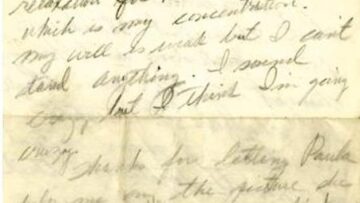 relaxation for
which is my concentration.
my will is weak but I can't
stand anything. I sound
crazy, but I think I'm going
crazy.
Thanks for letting Paula
help me on the picture she